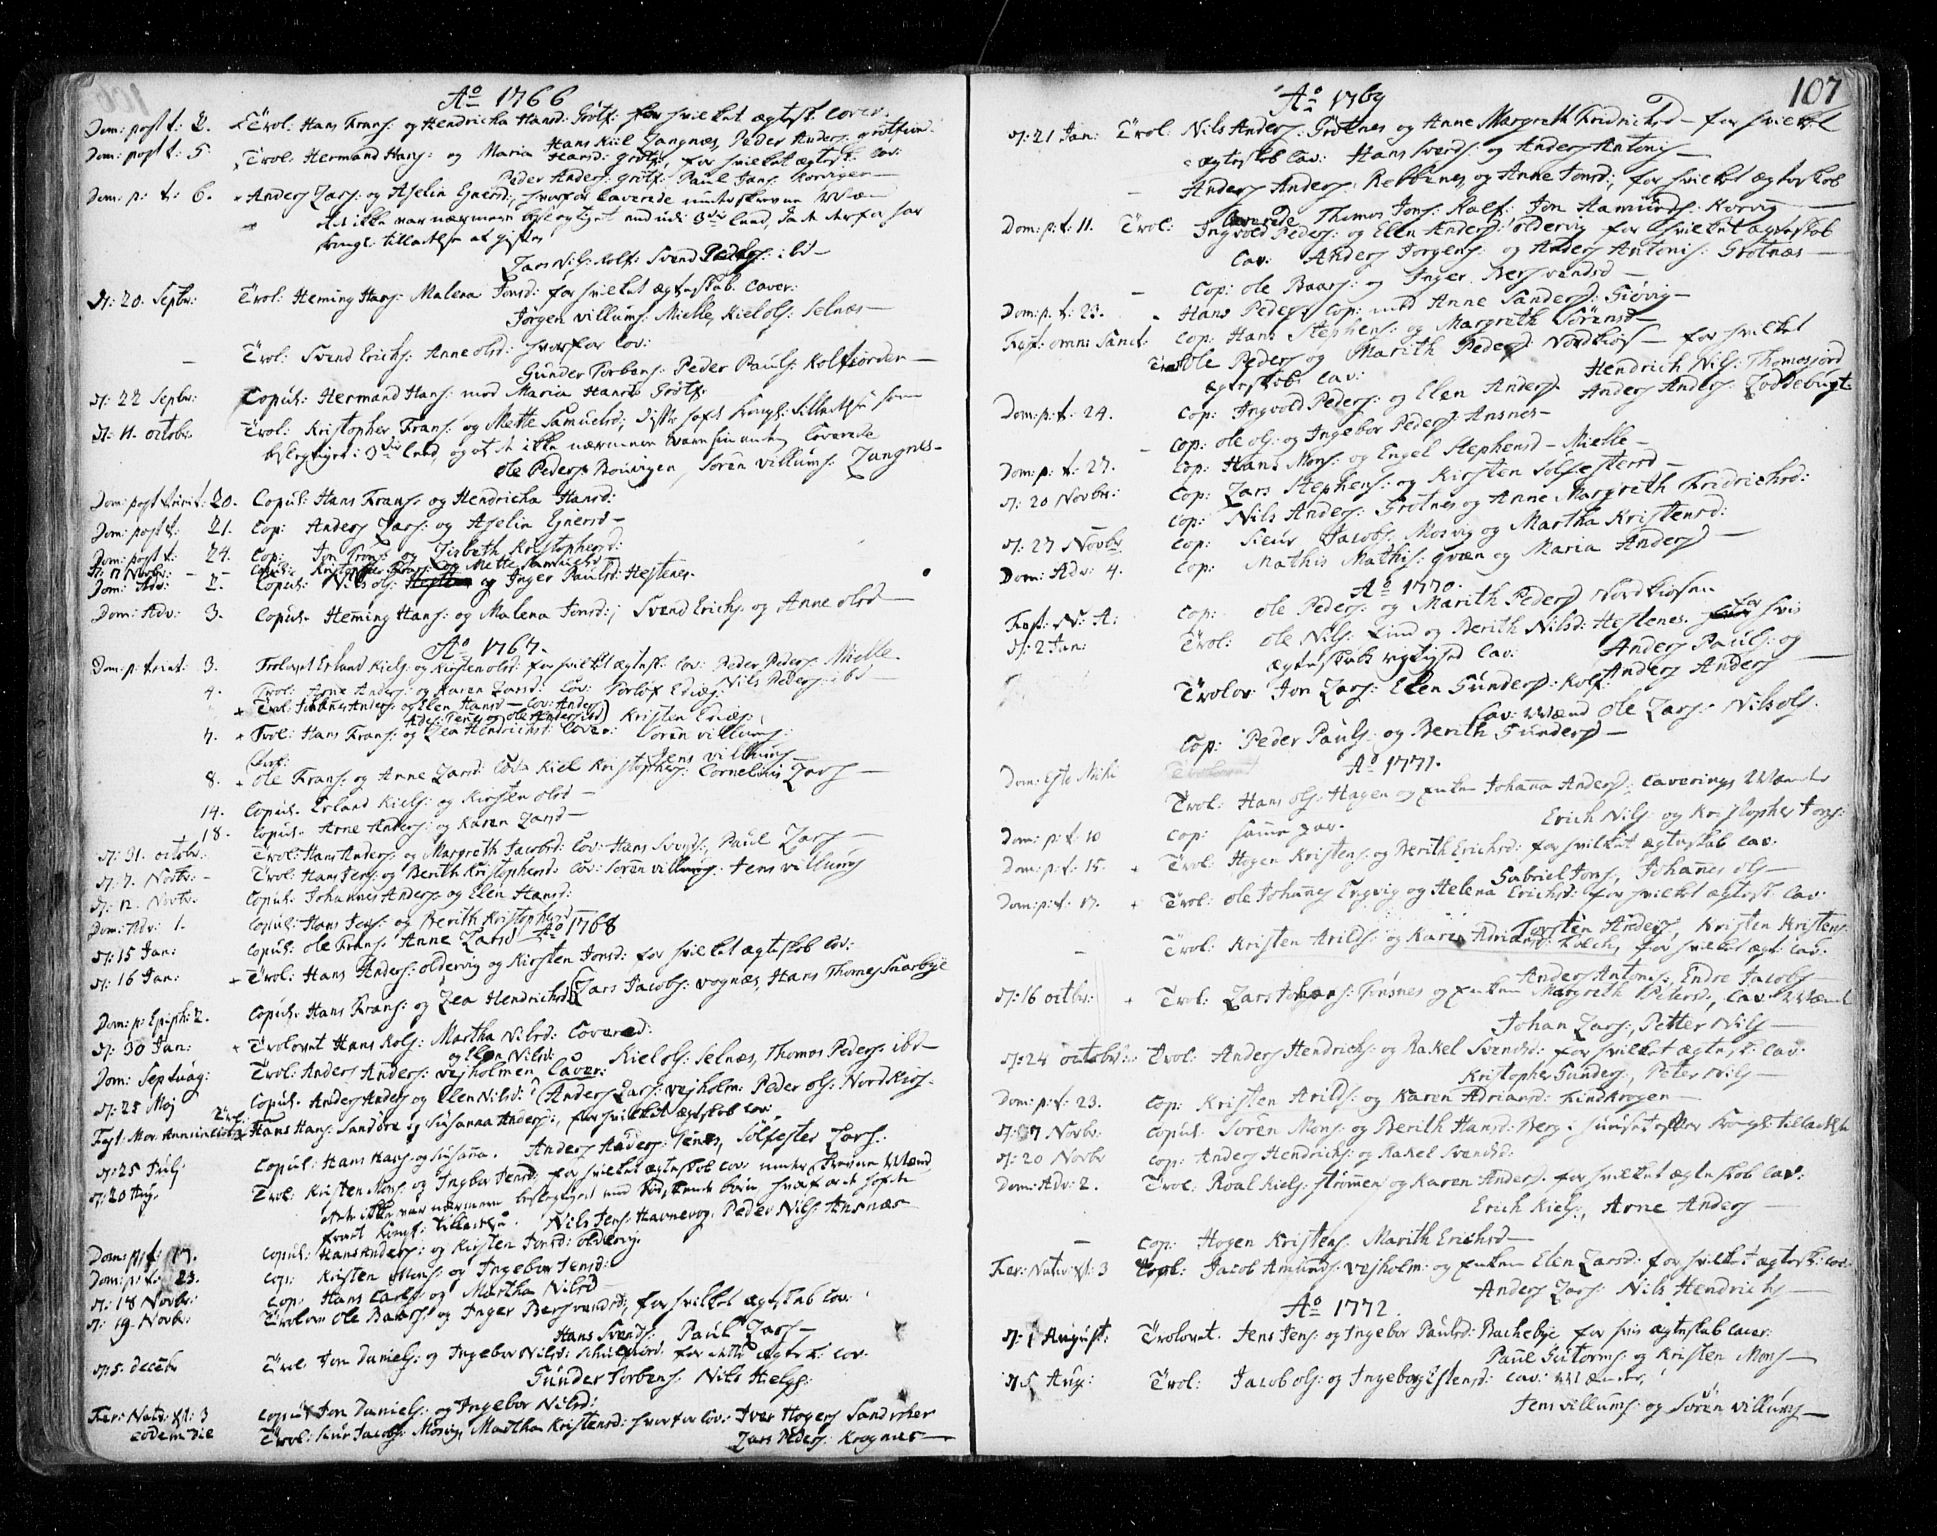 Ao 1766
Dom: post t: 2. Trol: Hans Frans: og Hendricha Hansd: Grötf: for hvilket ægtesk: caver:
Hans Kiil Zangnes, Peder Anders: grötfiord
Dom: post t: 5. Trol: Hermand Hans: og Maria Hansd: Grötf: for hvilket ægtesk: cav:
Peder Anders: Grötf: Paul Jans:
Dom: p: t: 6. Anders Zars: og Aselin Ejnersd:, hvorfor caverede underskrevne
ikke var nærmere end udi 3die leed, har
kongl: tilladelse at gifte,
Zars Nils: Kolf: Svend Peders: ibd
D: 20. Septbr: Trol: Heming Hans: Malena Jonsd: for hvilket ægteskab caver:
Jörgen Villums: Mielle, Kiel Ols: Selnæs
— Trol: Svend Erichs: Anne Olsd: hvorfor cav:
Gunder Torbens: Peder Pauls: Kolfiorden
D: 22 Septbr: Copul: Hermand Hans: med Maria Hansd: Grötf:
D: 11. octobr: Trol: Kristopher Frans: og Mette Samuelsd:
3die leed, og at de ikke nærmere caverede
Ole Peders: , Sören Villums: Zangnes
Dom: post trinit: 20. Copul: Hans Frans: og Hendricha Hansd:
Dom: post t: 21. Cop: Anders Zars: og Aselin Ejnersd
Dom: post t: 24. Cop: Jon Frans: og Lisbeth Kristophersd:
D: 17 Novbr: Copul: Kristopher Frans: og Mette Samuelsd
Dom: Adv: 2. Copul: Nils Ols: og Inger Paulsd: Hestenes
Dom: Adv: 3. Copul: Heming Hans: og Malena Jonsd:; Svend Erichs: og Anne Olsd
Ao 1767
Dom: p: trinit: 3. Trolovet Erland Kiels: og Kirsten Olsd: for hvilket ægtesk: cav: Peder Peders: Mielle
Nils Peders: ibd
4. Trol: Arne Anders: og Karen Zarsd: cav: Torlof
Trol: Johannes Anders: og Elen Hansd cav: Anders
og Ole Anders: ibd) Kristen
7. Trol: Hans Frans: og Zea Hendrichsd: caver: Sören Villums:
Jens Villums
8. Ole Frans: og Anne Zarsd: cav: Kiel Kristophers: Cornelius Zars
14. Copul: Erland Kiels: og Kirsten Olsd
18. Copul: Arne Anders: og Karen Zarsd
D: 31. octobr: Trol: Hans Anders: og Margreth Jacobsd: cav: Hans Svends:, Paul Zars
D: 7. Novbr: Trol: Hans Jens: og Berith Kristophersd: cav: Sören Villums: Jens Villums
D: 12. Novbr Copul: Johannes Anders: og Elen Hansd:
Dom: Adv: 1. Copul: Hans Jens: og Berith Kristophersd
Ao 1768
D: 15 Jan: Copul: Ole Frans: Anne Zarsd
D: 16 Jan: Trol: Hans Anders: oldervig og Kirsten Jonsd: for hvilket ægteskab cav:
Zars Jacobs: vognæs, Hans Thomes: Snarbye
Dom: p: Epiph: 2. Copul: Hans Frans: og Zea Hendrichsd
D: 30 Jan: Trolovet Hans Kols: Martha Nilsd: Covered:
Kiel Ols: Selnæs, Thomas Peders: ibd
Dom: Septuag: Trol: Anders Anders: Vejholmen og Elen Nilsd: Caver:
Anders Zars: vejholm: Peder Ols: Nordkios:
D: 25 Maj Copul: Anders Anders og Elen Nilsd:
Fest: Mar: Annunciat: Trol: Hans Hans: Sandöre og Susanna Anders:, for hvilket ægteskab cav.
Anders Anders: , Sölfester Zars:
D: 25 Julj Copul: Hans Hans: og Susanna.
D: 20 Aug: Trol: Kristen Mons: og Ingebor Jensd: for hvilket ægteskab cav: underskrevne Mænd
ikke var nærmere beslegtet end
kongl: tilladelse. Nils Jens: Havnevog: Peder Nils: Ansnæs
Dom: p: t: 17. Copul: Hans Anders: og Kirsten Jonsd: oldervig.
Dom: p: t: 23. Cop: Kristen Mons: og Ingebor Jensd:
D: 18 Novbr: Cop: Hans Carls: og Martha Nilsd
D: 19. Novbr: Trolovet Ole Baars: og Inger Bersvendsd:, for hvilket ægteskab cav:
Hans Svends:, Paul Zars
D: 5. decbr Trol: Jon Daniels: og Ingebor Nilsd: for dette ægtesk: cav:
Gunder Torbens: Nils Hiels:
Fer: Nativ: xt: 3 Copul: Jon Daniels: og Ingebor Nilsd:
eodem die Trol: Siur Jacobs: Mosvig, Martha Kristensd: hvorfor cav: Iver Hogens: Sandören
Zars Peders: Krognes
107
Ao 1769
D: 21 Jan: Trol: Nils Anders: Grötnes og Anne Margreth Fridrichsd for hvilket
ægteskab cav: Hans Svends: og Anders Antonis
— Anders Anders: Rebbenes og Anne Jonsd:, for hvilket ægteskab
caverede Thomas Jons: Kalf: Jon Aamunds: Korvig
Dom: p: t: 11. Trol: Ingvold Peders: og Elen Anders: oldervig for hvilket ægteskab
cav: Anders Jörgens: og Anders Antonis: Grötnæs
— Cop: Ole Baars: og Inger Bersvendsd
Dom: p: t: 23. Hans Peders: cop: med Anne Sandersd: Giövig
Fest: omn: Sanct: Cop: Hans Stephens: og Margreth Sörensd
Trol: Ole Peders og Marith Peders: Nordkios for hvilket
ægteskab cav: Hendrich Nils: Thomasjord
Anders Anders: Zoddebugt
Dom: p: t: 24. Cop: Ingvold Peders: og Elen Anders
— Cop: Ole Ols: og Ingebor Peders Ansnes
Dom: p: t: 27. Cop: Hans Mons: og Engel Stephensd Mielle
D: 20 Novbr: Cop: Zars Stephens: og Kirsten Sölfestersd
Cop: Nils Anders: Grötnes og Anne Margreth Fridrichsd:
D: 27 Novbr: Cop: Siur Jacobs: Mosvig og Martha Kristensd:
Dom: Adv: 4. Cop: Mathis Mathis: qvæn og Maria Andersd
Ao 1770
Fest: N: A: Cop: Ole Peders: og Marith Pedersd Nordkiosen
D: 2 Jan: Trol: Ole Nils: Lind og Berith Nilsd: Hestenes for hvis
ægteskabs rigtighed cav: Anders Pauls: og
Anders Anders
Trolov: Jon Zars: Elen Gundersd: Kolf:
cav: Mænd Ole Zars: Nils Ols:
Cop: Peder Pauls: og Berith Gundersd
Ao 1771.
Dom: Esto Mihi Trol: Hans Ols: Hagen og enken Johanna Andersd: caverings Mænd
Erich Nils: og Kristopher Jons:
Dom: p: t: 10 Cop: samme par.
Dom: p: t: 15. Trol: Hogen Kristens: og Berith Erichsd: for hvilket ægteskab cav.
Gabriel Jons, Johannes Ols
Dom: p: t: 17. Trol: Ole Johannes: Ersvig og Helena Erichsd: for hvilket ægtesk: cav:
Torsten Anders: Kristen Kristens
— Trol: Kristen Arilds: og Karen Adriansd: for hvilket ægt: cav:
Anders Antonis: Endre Jacobs
D: 16 octbr: Trol: Zars Johans: Finsnes og enken Margreth Petersd:, cav: Mænd
Johan Zars:, Petter Nils
D: 24 octobr: Trol: Anders Hendrichs: og Rakel Svendsd: for hvilket ægtesk: cav:
Kristopher Gunders:, Peter Nils
Dom: p: t: 23. Cop: Kristen Arilds: og Karen Adriansd: Findkrogen
D: 17 Novbr: Copul: Sören Mons: og Berith Hansd: Berg i huuset efter kongl: tilladelse
D: 20 Novbr Cop: Anders Hendrichs: og Rakel Svendsd:
Dom: Adv: 2. Trol: Roal Kiels: Strömen og Karen Andersd: for hvilket ægteskab cav:
Erich Kiels:, Arne Anders
— Cop: Hogen Kristens: Marith Erichsd
Fer: Nativ: xt: 3 Copl: Jacob Amunds: Vejholm: og enken Elen Zarsd: for hvilket ægtesk: cav:
Anders Zars: Nils Hendrichs
Ao 1772
D: 1 August: Trolovet. Jens Jens: og Ingebor Paulsd: Bachebye for hvis ægteskab cavr:
Paul Gutorms: og Kristen Mons
D 5 Aug: Trol: Jacob Ols: og Ingeborg cav: Mænder,
Jens Villums: og Sören Villums